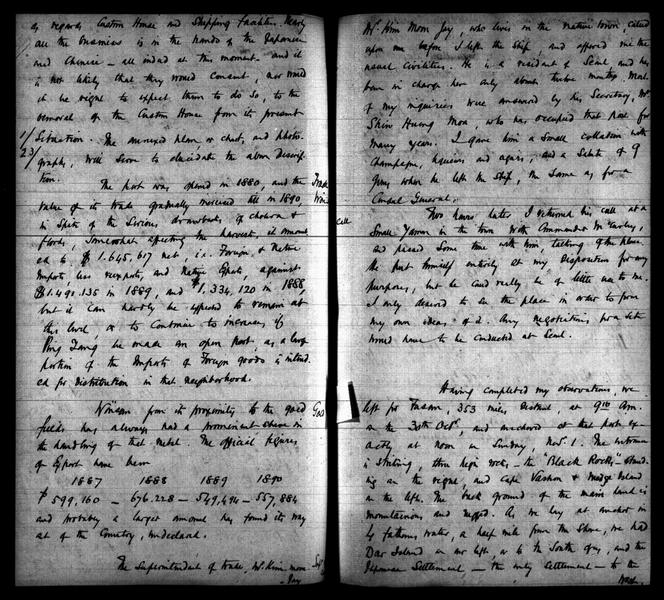 as regards Custom House and Shipping facilities. Nearly
all the business is in the hands of the Japanese
and Chinese - all indeed at this moment - and it
is not likely that they would consent, nor would
it be right to expect them to do so, to the
removal of the Custom House from its present
Situation. The annexed plan or chart, and photo-
graphs, will serve to elucidate the above Descrip-
tion.
1/
23/
The port was opened in 1880, and the
value of its trade gradually increased till in 1890,
in spite of the serious drawbacks, of cholera &
floods, somewhat affecting the harvest, it amount
ed to $1.645,617 net, i.e. Foreign & Native
Imports, less reexports, and Native Exports, against
$1.490.135 in 1889, and $1,334,120 in 1888
but it can hardly be expected to remain at
this level or to continue to increase, if
Ping Yang be made an open port, as a large
portion of the Imports of Foreign goods is intend-
ed for distribution in that neighborhood.
Trade
Wönsan from its proximity to the gold
fields has always had a prominent share in
the handling of that metal. The official figures
of Export have been
1887 1888 1889 1890
$599,160 - 676.228 - 549,494 - 557,884
and probably a larger amount has found its way
out of the Country, undeclared.
The Superintendent of Trade, Mr. Kim Mon
Jay
Mr. Kim Mon Jay, who lives in the native town, called
upon me before I left the Ship, and offered me the
usual civilities. He is a resident of Seoul and has
been in charge here only about twelve months. Most
of my inquiries were answered by his Secretary, Mr.
who has occupied that post for
many years. I gave him a small collation with
Champagne, liqueurs and cigars, and a Salute of 9
Guns when he left the Ship, the same as for a
Consul General.
Two hours later I returned his call at a
Call
small Yamen in the town with Commander
and passed some time with him, talking of the place
He put himself entirely at my disposition for any
purposes, but he could really be of little use to me
as I only desired to see the place in order to form
my own ideas of it. Any negotiations for a site
would have to be conducted at Seoul.
Having completed my observations we
left for Fusan, 353 miles distant, at 9 Am.
on the 30th Oct., and anchored at that port ex-
actly at noon on Sunday, Nov. 1. The entrance
is striking, three high rocks - the "Black Rocks" - stand-
ing on the right, and Cape Vashon & Magpie Island
on the left. The back ground of the main land is
mountainous and rugged. As we lay at anchor in
4½ fathoms water, a half mile from the Shore, we had
Deer Island on our left, or to the South of us, and the
Japanese Settlement - the only Settlement - to the